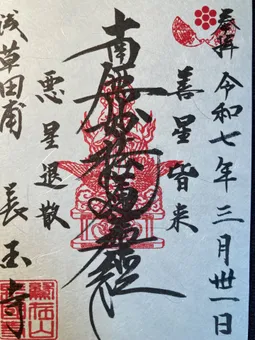 奉拝 令和七年三月卅一日
善星皆来
南無妙法蓮華経
悪星退散
浅草田甫 長国寺
鷲在山